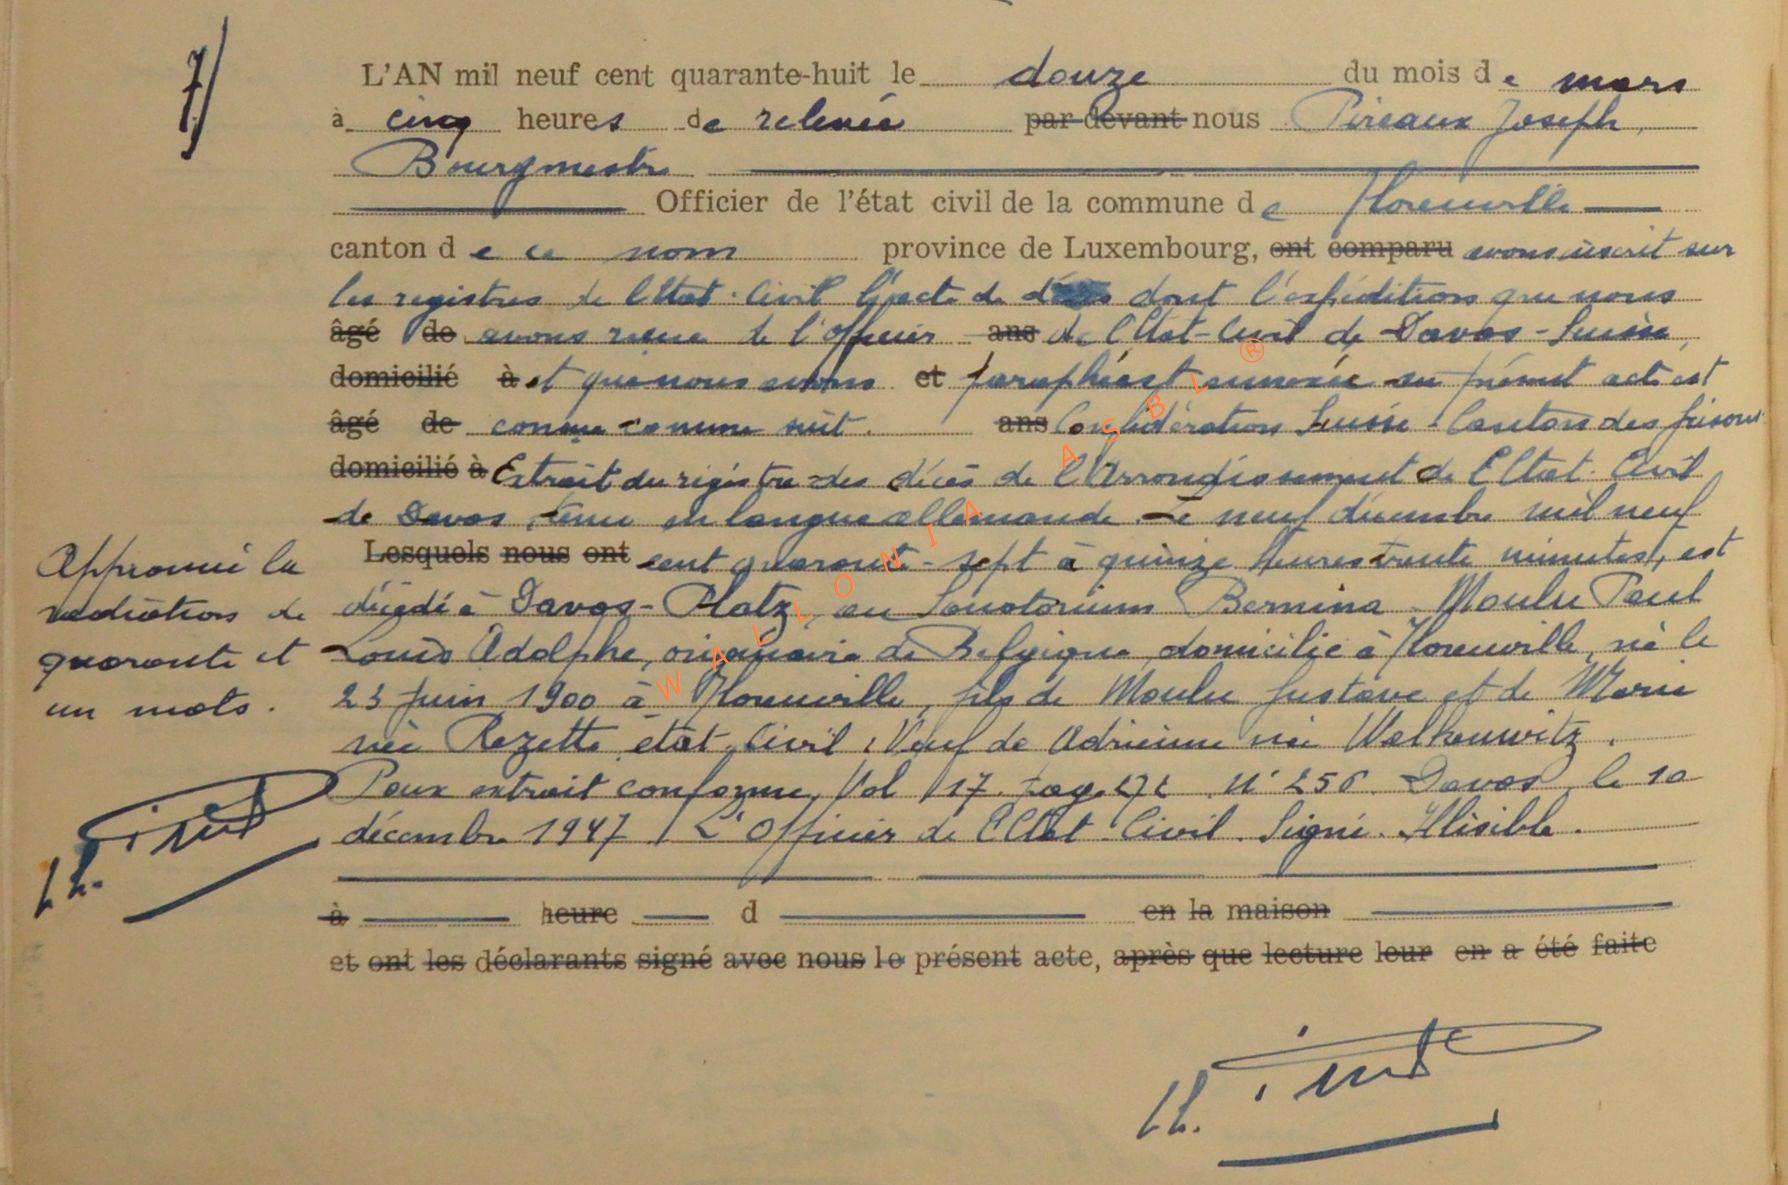 7)
L'AN mil neuf cent quarante-huit le douze du mois de mars
à cinq heures de relevée par devant nous Pireaux Joseph,
Bourgmestre
Officier de l'état civil de la commune de Florenville
canton de ce nom province de Luxembourg, ont comparu avons inscrit sur
les registres de l'Etat-Civil l'acte de décès dont l'expédition que nous
âgé de avons reçue de l'Officier ans de l'Etat-Civil de Davos-Suisse,
domicilié à et que nous avons et paraphée est annexée au présent acte est
âgé de conçue comme suit. ans Confédération Suisse. Canton des Grisons
domicilié à Extrait du registre des décès de l'Arrondissement de l'Etat-Civil
de Davos, tenu en langue allemande. Le neuf décembre mil neuf
Lesquels nous ont cent quarante-sept à quinze heures trente minutes, est
décédé à Davos-Platz, au Sanatorium Bernina. Moulu Paul
Louis Adolphe, originaire de Belgique, domicilié à Florenville, né le
23 Juin 1900 à Florenville, fils de Moulu Gustave et de Marie
née Rezette, état-civil: Veuf de Adrienne née Walkenwitz.
Pour extrait conforme, Vol 17. pag. N° 256. Davos, le 10
décembre 1947. L'Officier de l'Etat-Civil. Signé. Illisible.
à heure d en la maison
et ont les déclarants signé avec nous le présent acte, après que lecture leur en a été faite
Approuvé la
radiation de
quarante et
un mots.
WALLONIA ASBL ®